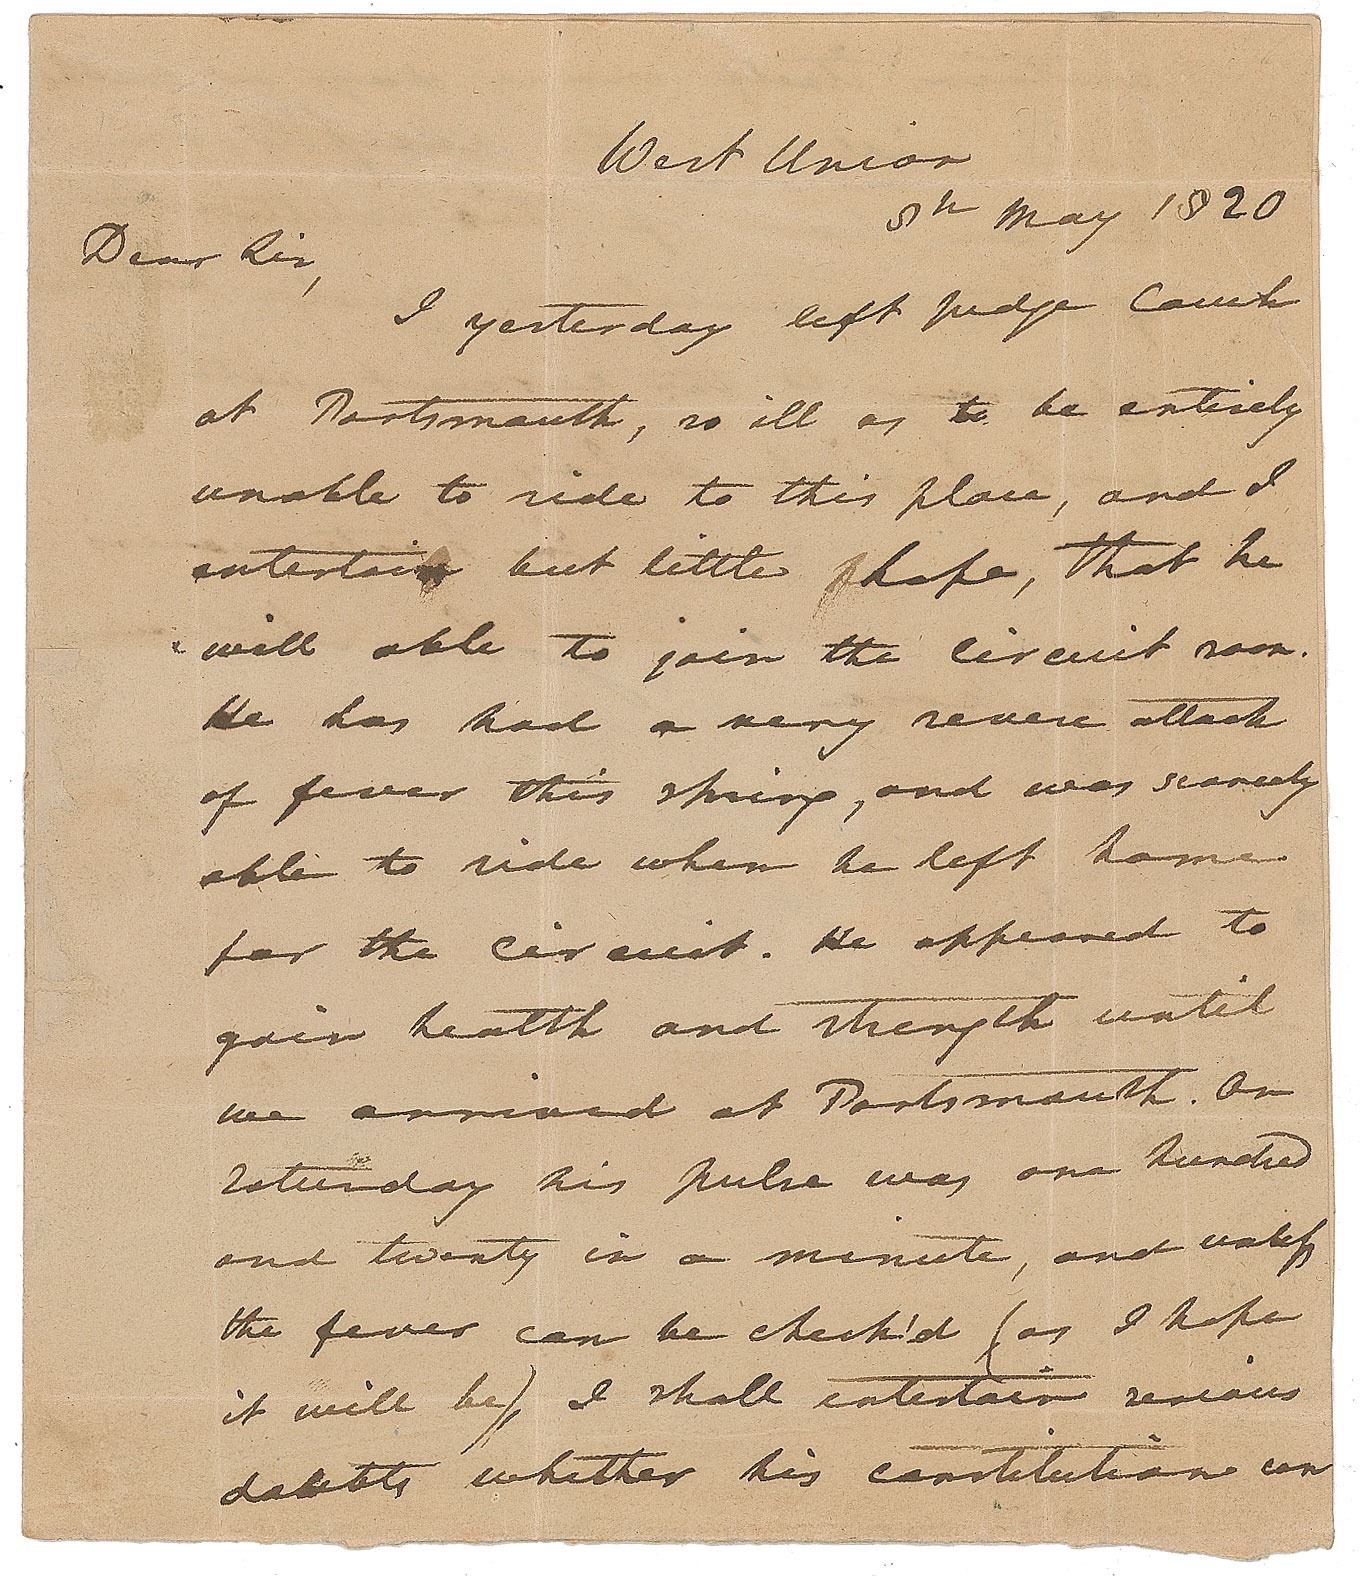 West Union
8th May 1820
Dear Sir,
I yesterday left judge Couch
at Portsmouth, so ill as to be entirely
unable to ride to this place, and I
entertain but little hope, that he
will able to join the circuit soon.
He has had a very severe attack
of fever this spring, and was scarcely
able to ride when he left home
for the circuit. He appeared to
gain health and strength until
we arrived at Portsmouth. On
Saturday his pulse was one hundred
and twenty in a minute, and unless
the fever can be check'd (as I hope
it will be), I shall entertain serious
doubts whether his constitution can